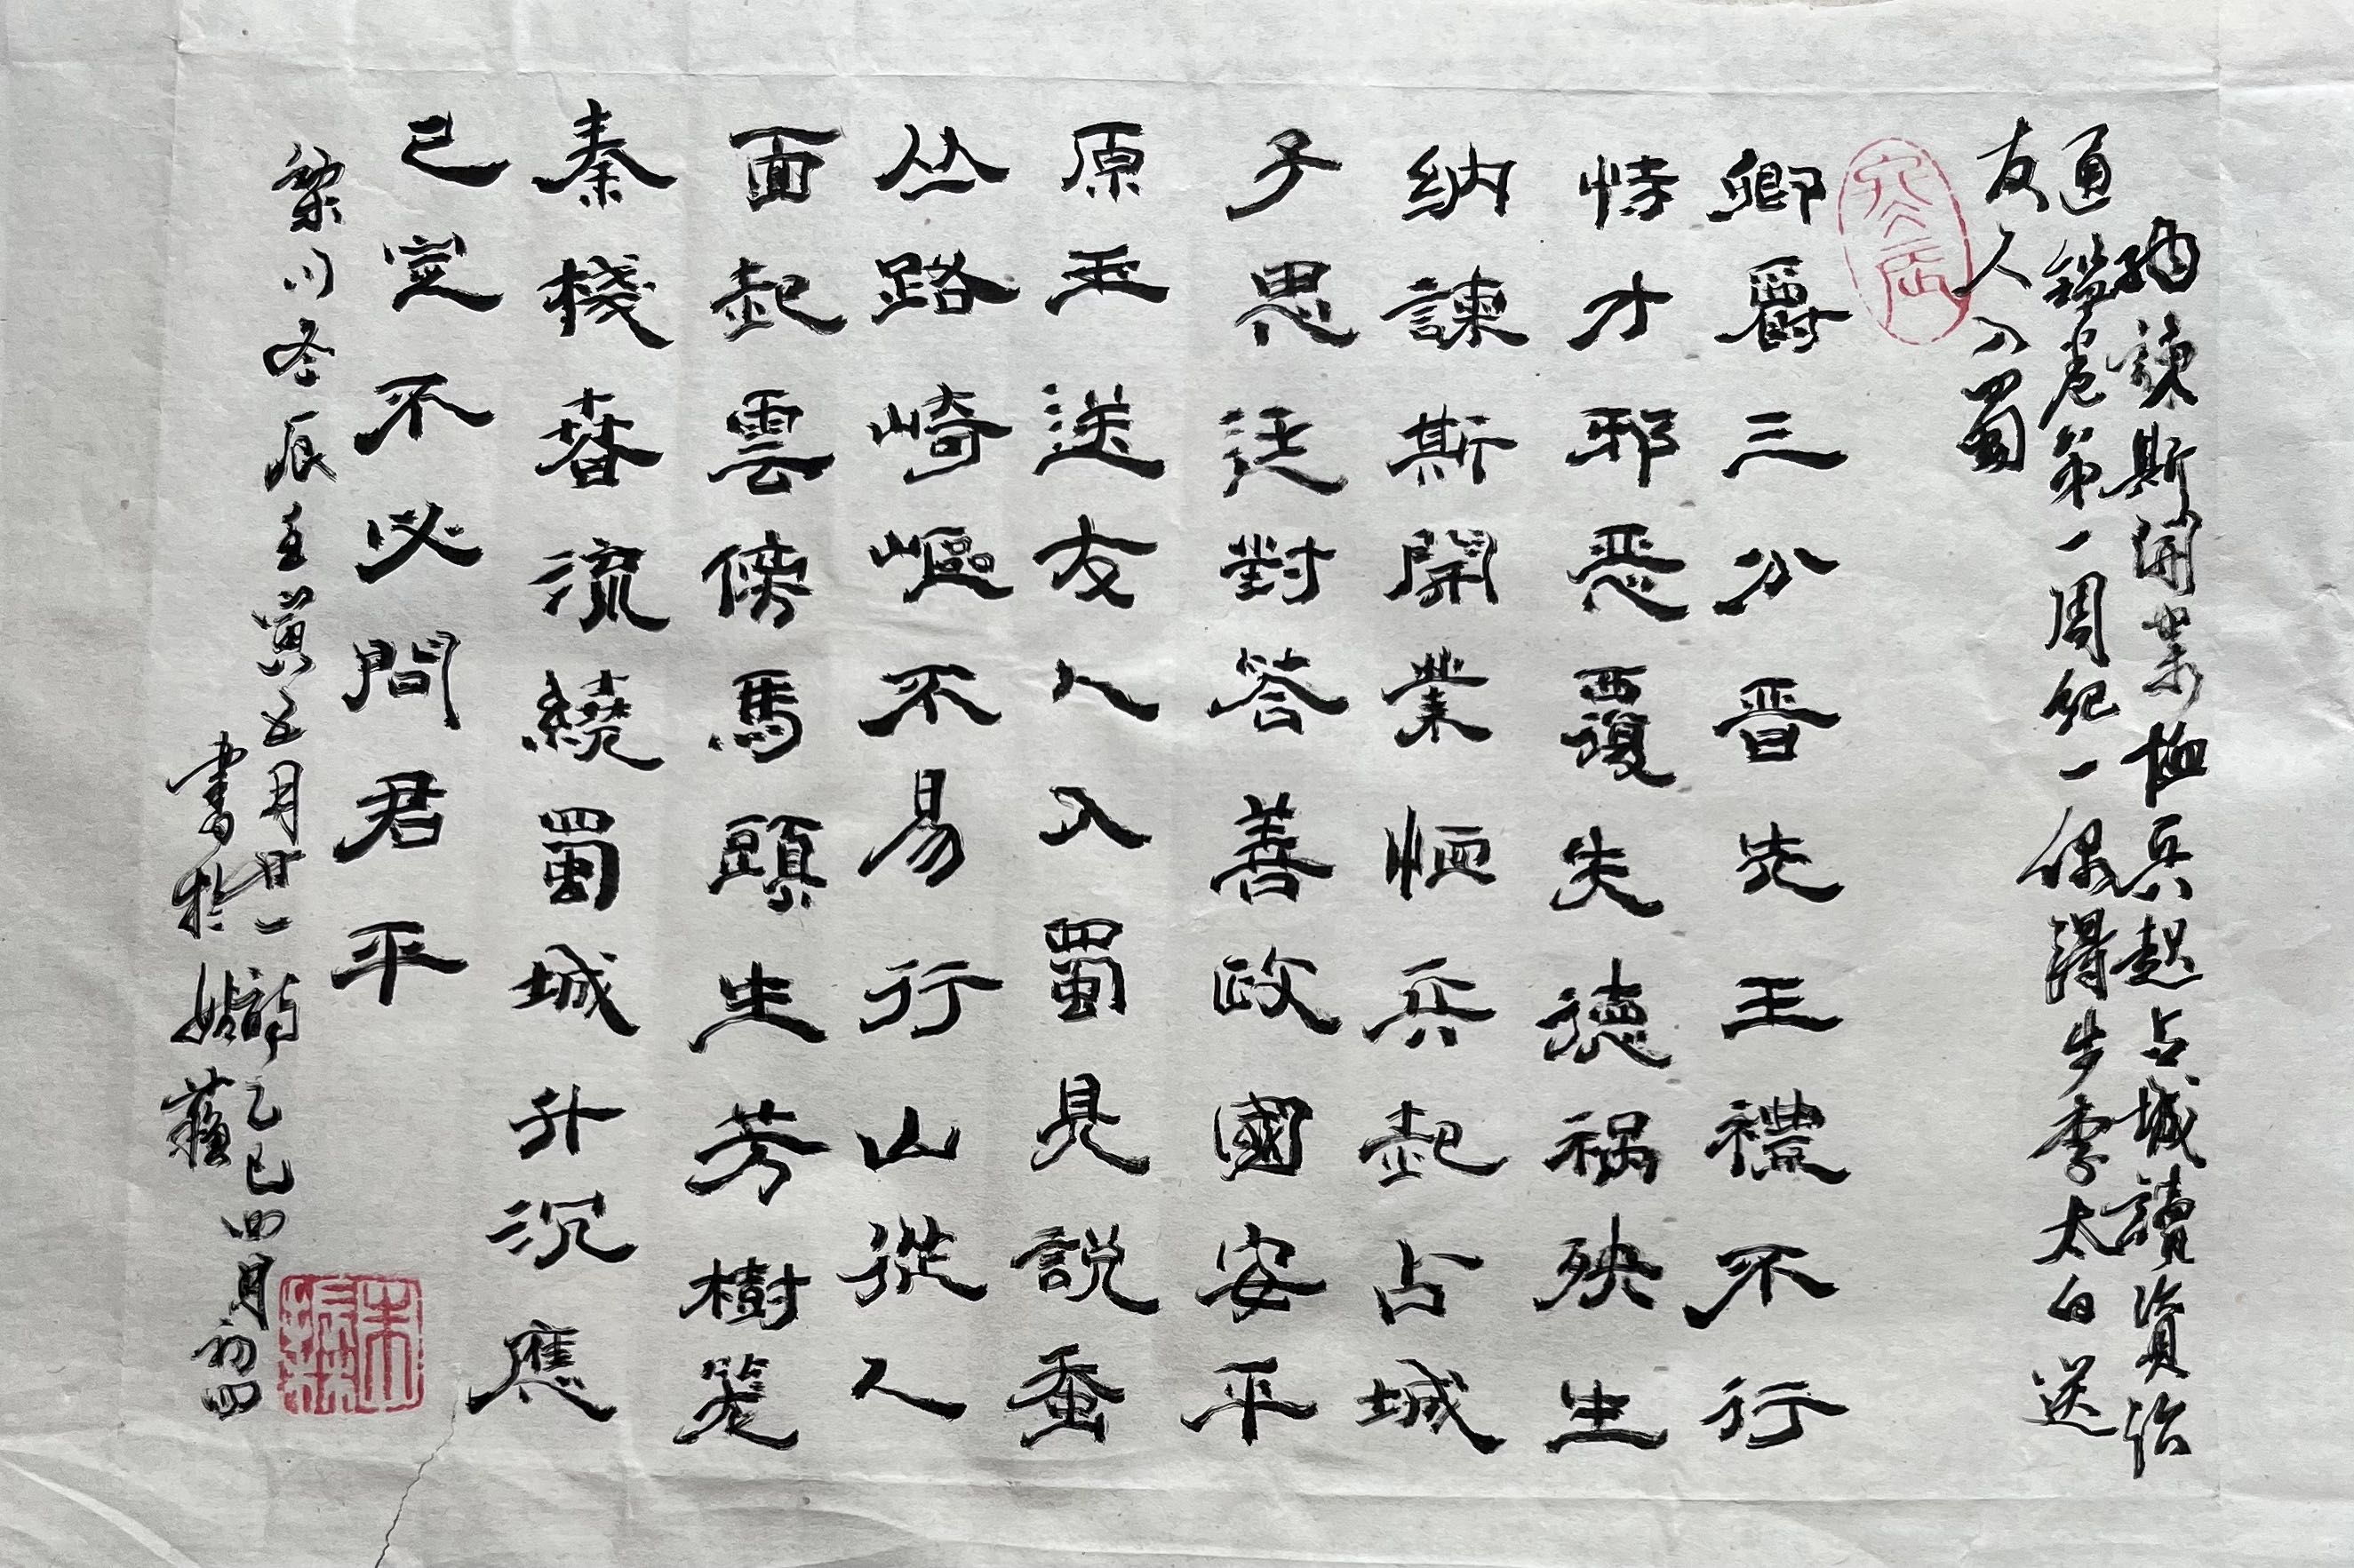 納諫斯開業恤兵起占城讀資治
通鑑卷第一周紀一偶得步李太白送
友人入蜀
卿爵三分晋先王禮不行
恃才邪恶覆失德祸殃生
納諫斯開業恤兵起占城
子思廷對答善政國安平
原玉送友人入蜀見説蚕
丛路崎嶇不易行山從人
面起雲傍馬頭生芳樹笼
秦棧春流繞蜀城升沉應
已定不必問君平
黎川冬辰壬寅五月廿一韵乙巳四月初四
書於嫏藉